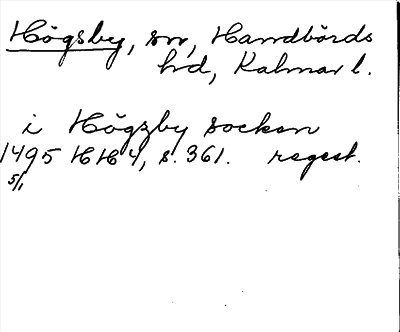 Högsby, sn, Handbörds
hd, Kalmar l.
i Högzby socken
1495 HH 4, s. 361. regest.
5/1